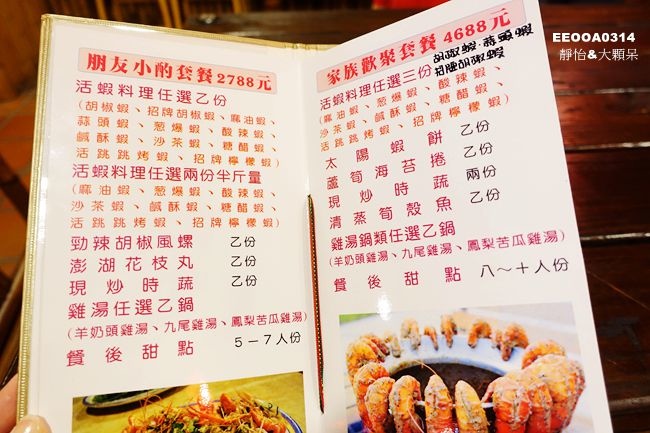 EEOOA0314
靜怡&大顆呆
朋友小酌套餐2788元
活蝦料理任選乙份
(胡椒蝦、招牌胡椒蝦、麻油蝦、
蒜頭蝦、葱爆蝦、酸辣蝦、
鹹酥蝦、沙茶蝦、糖醋蝦、
活跳跳烤蝦、招牌檸檬蝦)
活蝦料理任選兩份半斤量
(麻油蝦、葱爆蝦、酸辣蝦、
沙茶蝦、鹹酥蝦、糖醋蝦、
活跳跳烤蝦、招牌檸檬蝦)
勁辣胡椒風螺 乙份
澎湖花枝丸 乙份
現炒時蔬 乙份
雞湯任選乙鍋
(羊奶頭雞湯、九尾雞湯、鳳梨苦瓜雞湯)
餐後甜點 5－7人份
家族歡聚套餐4688元
胡椒蝦·蒜頭蝦
招牌胡椒蝦
活蝦料理任選三份
(麻油蝦、葱爆蝦、酸辣蝦、
沙茶蝦、鹹酥蝦、糖醋蝦、
活跳跳烤蝦、招牌檸檬蝦)
太陽蝦餅 乙份
蘆筍海苔捲 乙份
現炒時蔬 兩份
清蒸筍殼魚 乙份
雞湯鍋類任選乙鍋
(羊奶頭雞湯、九尾雞湯、鳳梨苦瓜雞湯)
餐後甜點 八～十人份